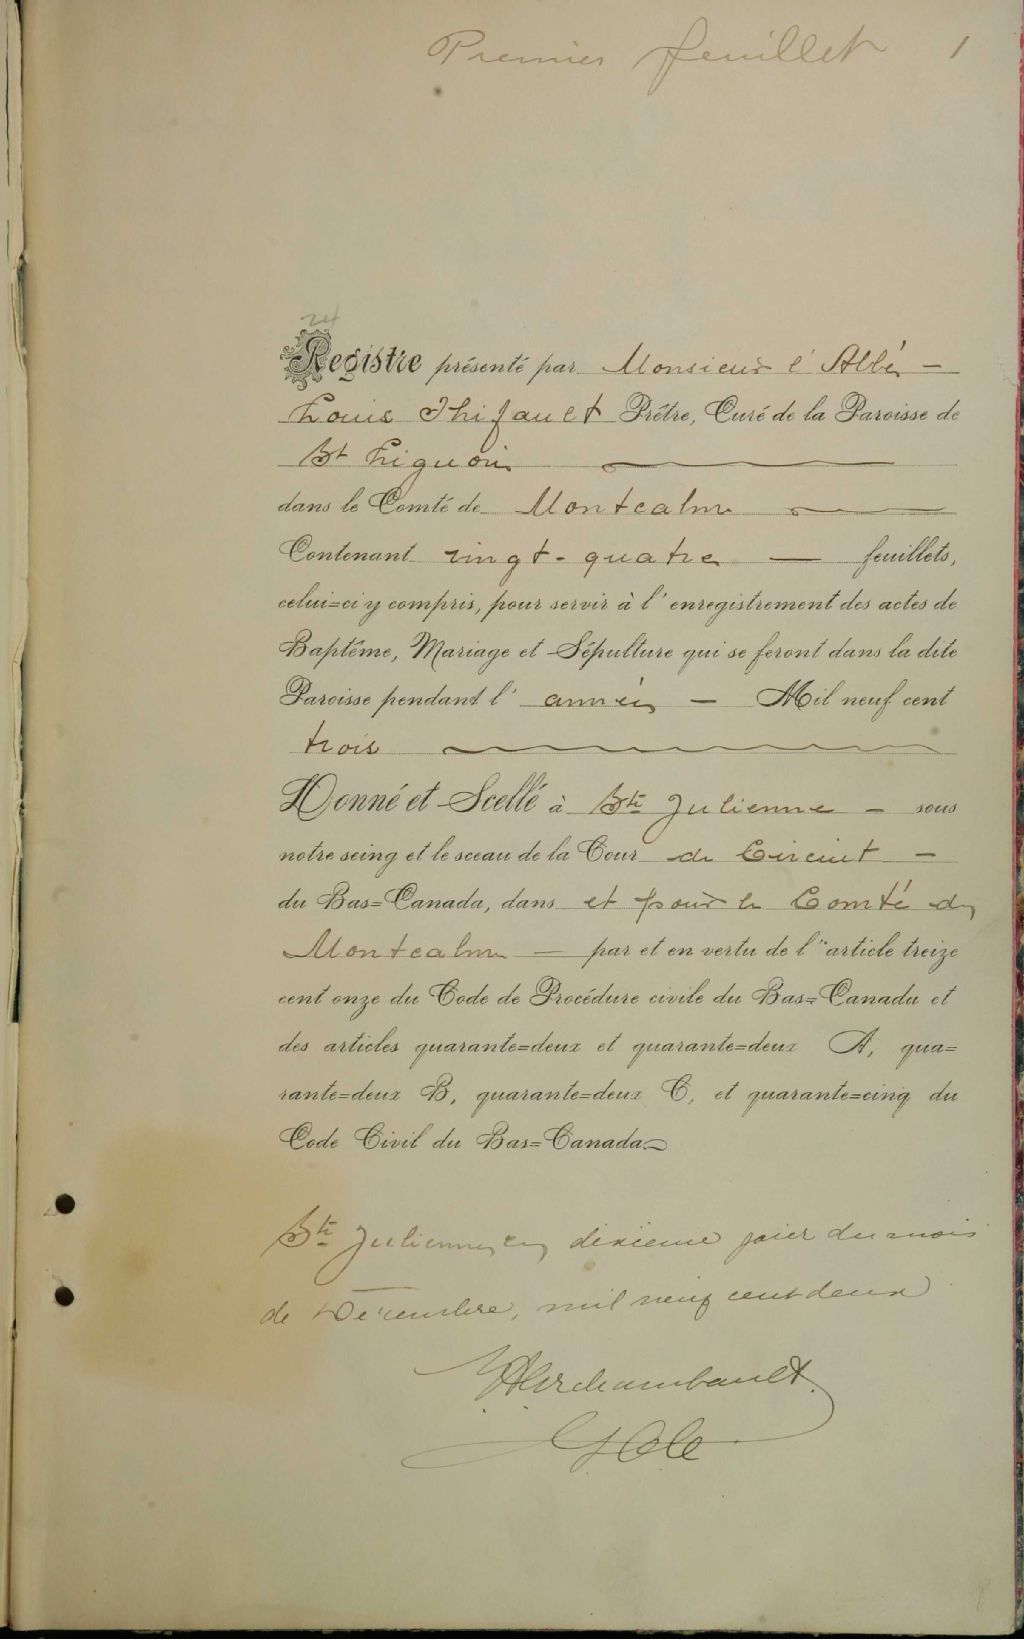 Premier feuillet 1
24
Registre présenté par Monsieur l'Abbé —
Louis Thifault Prêtre, Curé de la Paroisse de
St Liguori
dans le Comté de Montcalm
Contenant vingt-quatre — feuillets,
celui=ci y compris, pour servir à l'enregistrement des actes de
Baptême, Mariage et Sépulture qui se feront dans la dite
Paroisse pendant l'année — Mil neuf cent
trois
Donné et Scellé à Ste Julienne — sous
notre seing et le sceau de la Cour de Circuit —
du Bas=Canada, dans et pour le Comté de
Montcalm — par et en vertu de l'article treize
cent onze du Code de Procédure civile du Bas=Canada et
des articles quarante=deux et quarante=deux A, qua=
rante=deux B, quarante=deux C, et quarante=cinq du
Code Civil du Bas=Canada
Ste Julienne, ce dixième jour du mois
de Décembre, mil neuf cent deux
Archambault